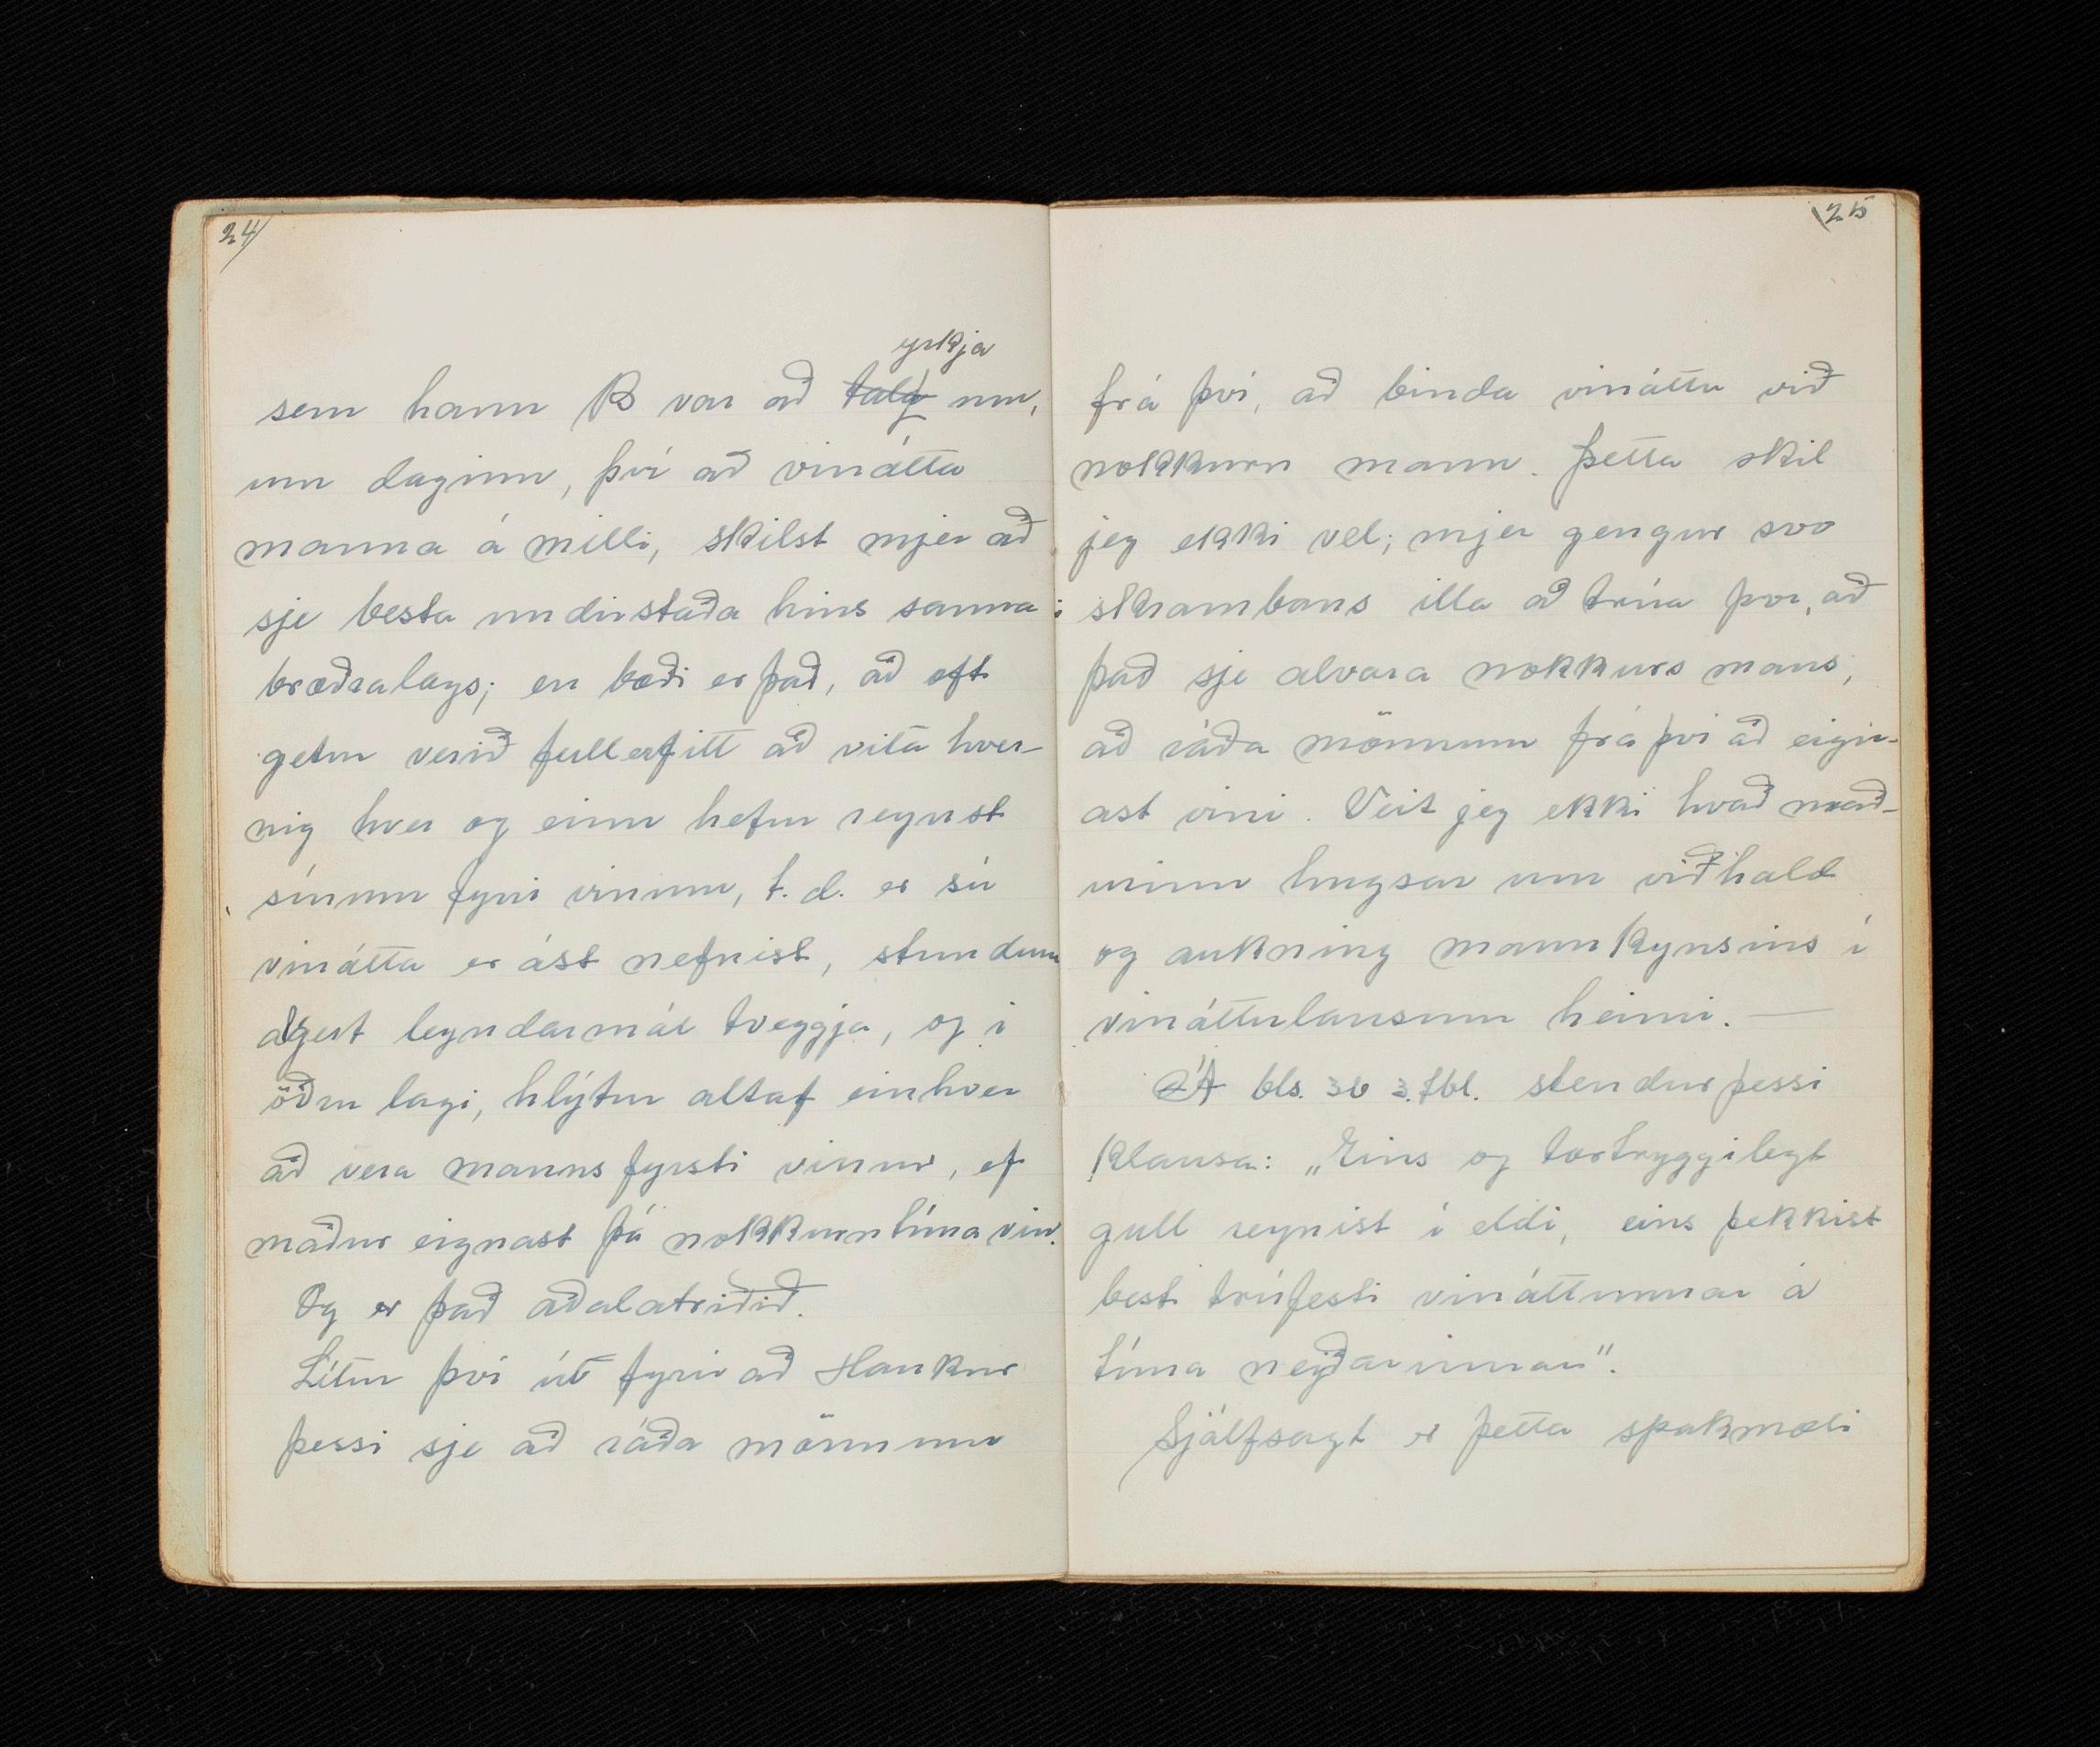 24
yrkja
sem hann B var að tala um,
um daginn, því að vinátta
manna á milli, skilst mjer að
sje besta undirstaða hins sanna
bræðralags; en bæði er það, að oft
getur verið fullerfitt að vita hver-
nig hver og einn hefur reynst
sínum fyrri vinum, t.d. er sú
vinátta er ást nefnist, stundum
algert leyndarmál tveggja, og í
öðru lagi, hlýtur altaf einhver
að vera manns fyrsti vinur, ef
maður eignast þá nokkurntíma vin.
Og er það aðalatriðið.
Lítur því út fyrir að Haukur
þessi sje að ráða mönnum
25
frá því, að binda vináttu við
nokkurn mann. Þetta skil
jeg ekki vel; mjer gengur svo
skrambans illa að trúa því, að
það sje alvara nokkurs mans,
að ráða mönnum frá því að eign-
ast vini. Veit jeg ekki hvað mað-
urinn hugsar um viðhald
og aukning mannkynsins í
vináttulausum heimi. —
Á bls. 36 3. tbl. stendur þessi
klausa: „Eins og tortryggilegt
gull reynist í eldi, eins þekkist
best trúfesti vináttunnar á
tíma neyðarinnar".
Sjálfsagt er þetta spakmæli